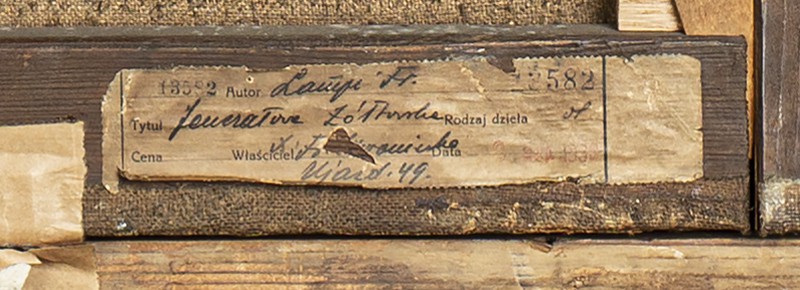 13582 Autor Lampi Fr. 13582
Tytuł Jenerałowa Żółtowska Rodzaj dzieła ol
Cena Właściciel Data
Ujazd. 49.